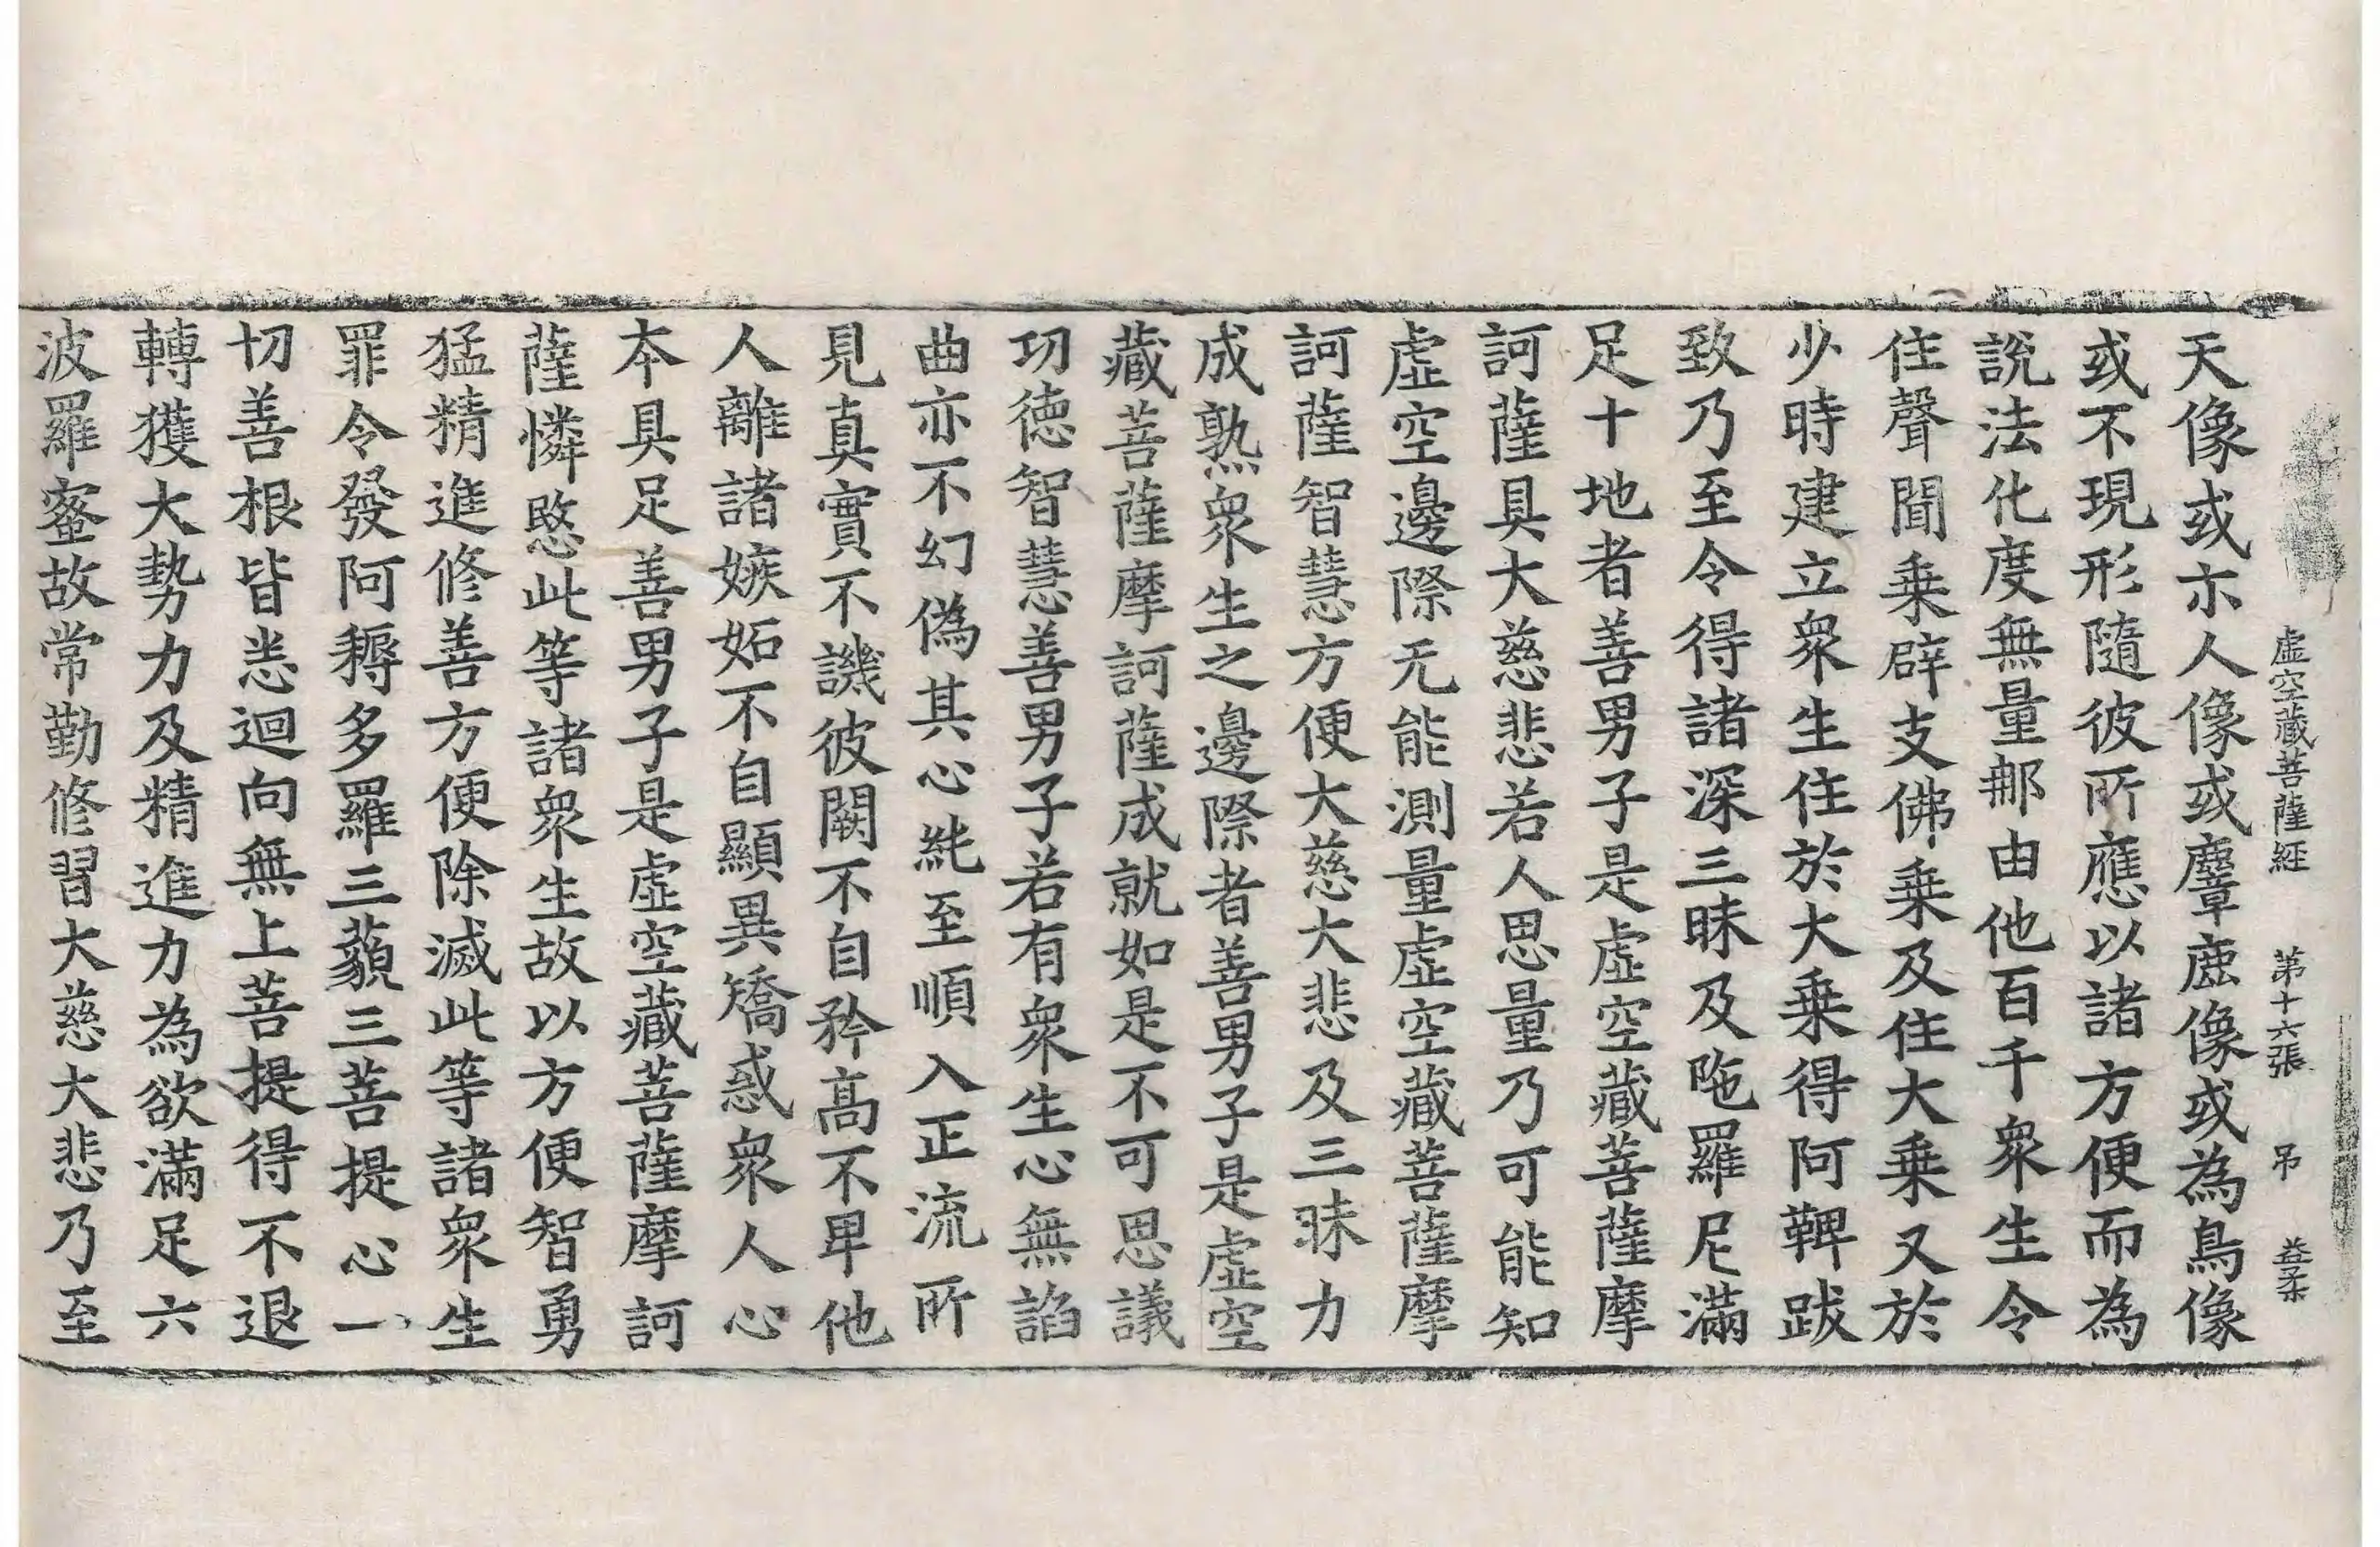 虛空藏菩薩經 第十六張 吊 益柔
天像或示人像或麞鹿像或為鳥像
或不現形隨彼所應以諸方便而為
說法化度無量那由他百千衆生令
住聲聞乗辟支佛乗及住大乗又於
少時建立衆生住於大乗得阿鞞跋
致乃至令得諸深三昧及陁羅尼滿
足十地者善男子是虛空藏菩薩摩
訶薩具大慈悲若人思量乃可能知
虛空邊際无能測量虛空藏菩薩摩
訶薩智慧方便大慈大悲及三昧力
成熟衆生之邊際者善男子是虛空
藏菩薩摩訶薩成就如是不可思議
功德智慧善男子若有衆生心無諂
曲亦不幻偽其心紕至順入正流所
見真實不譏彼闕不自矜高不卑他
人離諸嫉妬不自顯異矯惑衆人心
本具足善男子是虛空藏菩薩摩訶
薩憐愍此等諸衆生故以方便智勇
猛精進修善方便除滅此等諸衆生
罪令發阿耨多羅三藐三菩提心一
切善根皆悉迴向無上菩提得不退
轉獲大勢力及精進力為欲滿足六
波羅蜜故常勤修習大慈大悲乃至